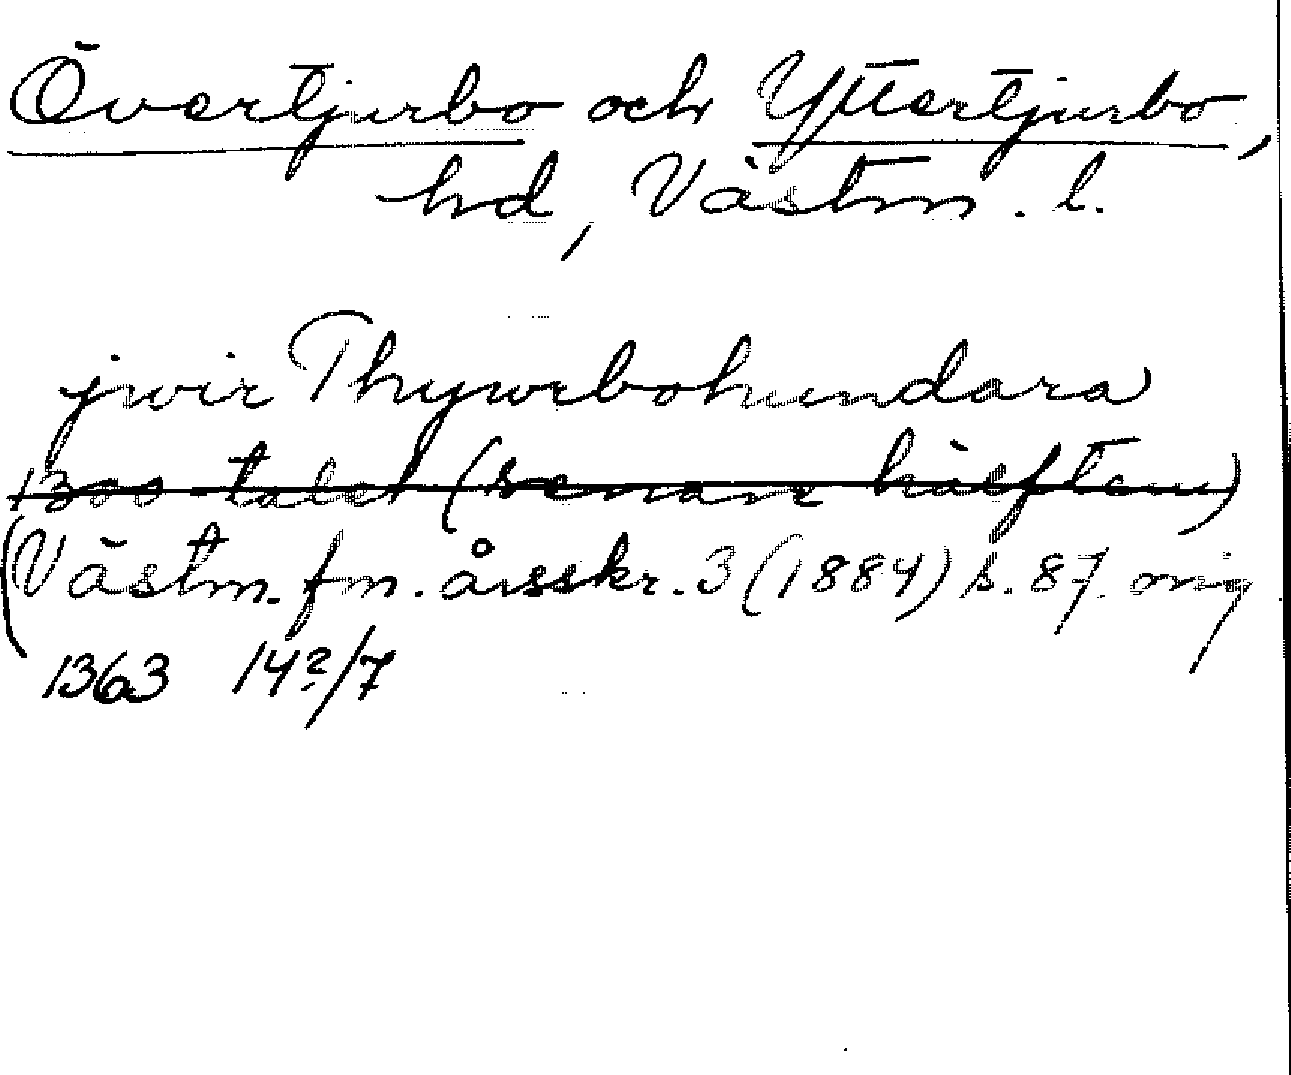 Övertjurbo och Yttertjurbo,
hd, Västm. l.
jwir Thywrbohundara
1300 talet (senare hälften)
(Västm. fm. årsskr. 3 (1884) s. 87. orig
1363 14?/7